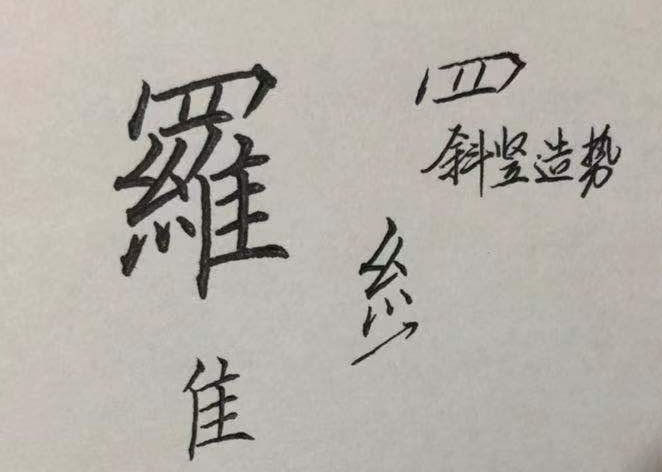 羅
罒
斜竖造势
糹
隹